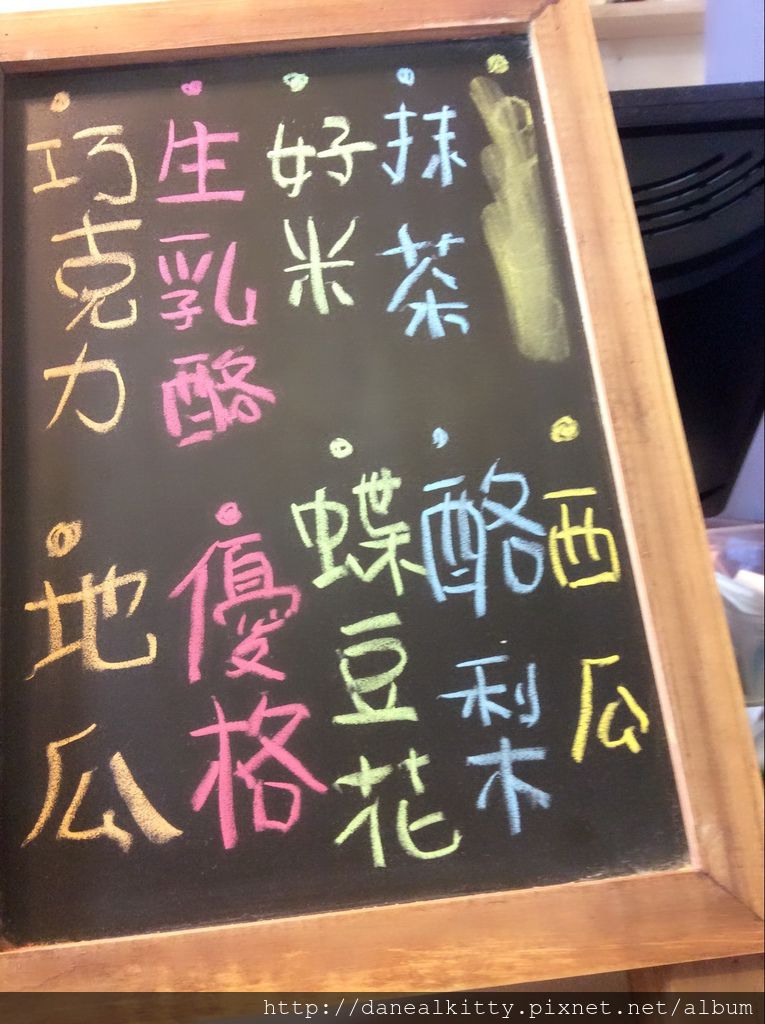 抹茶
好米
生乳酪
巧克力
西瓜
酪梨
蝶豆花
優格
地瓜
http://danealkitty.pixnet.net/album